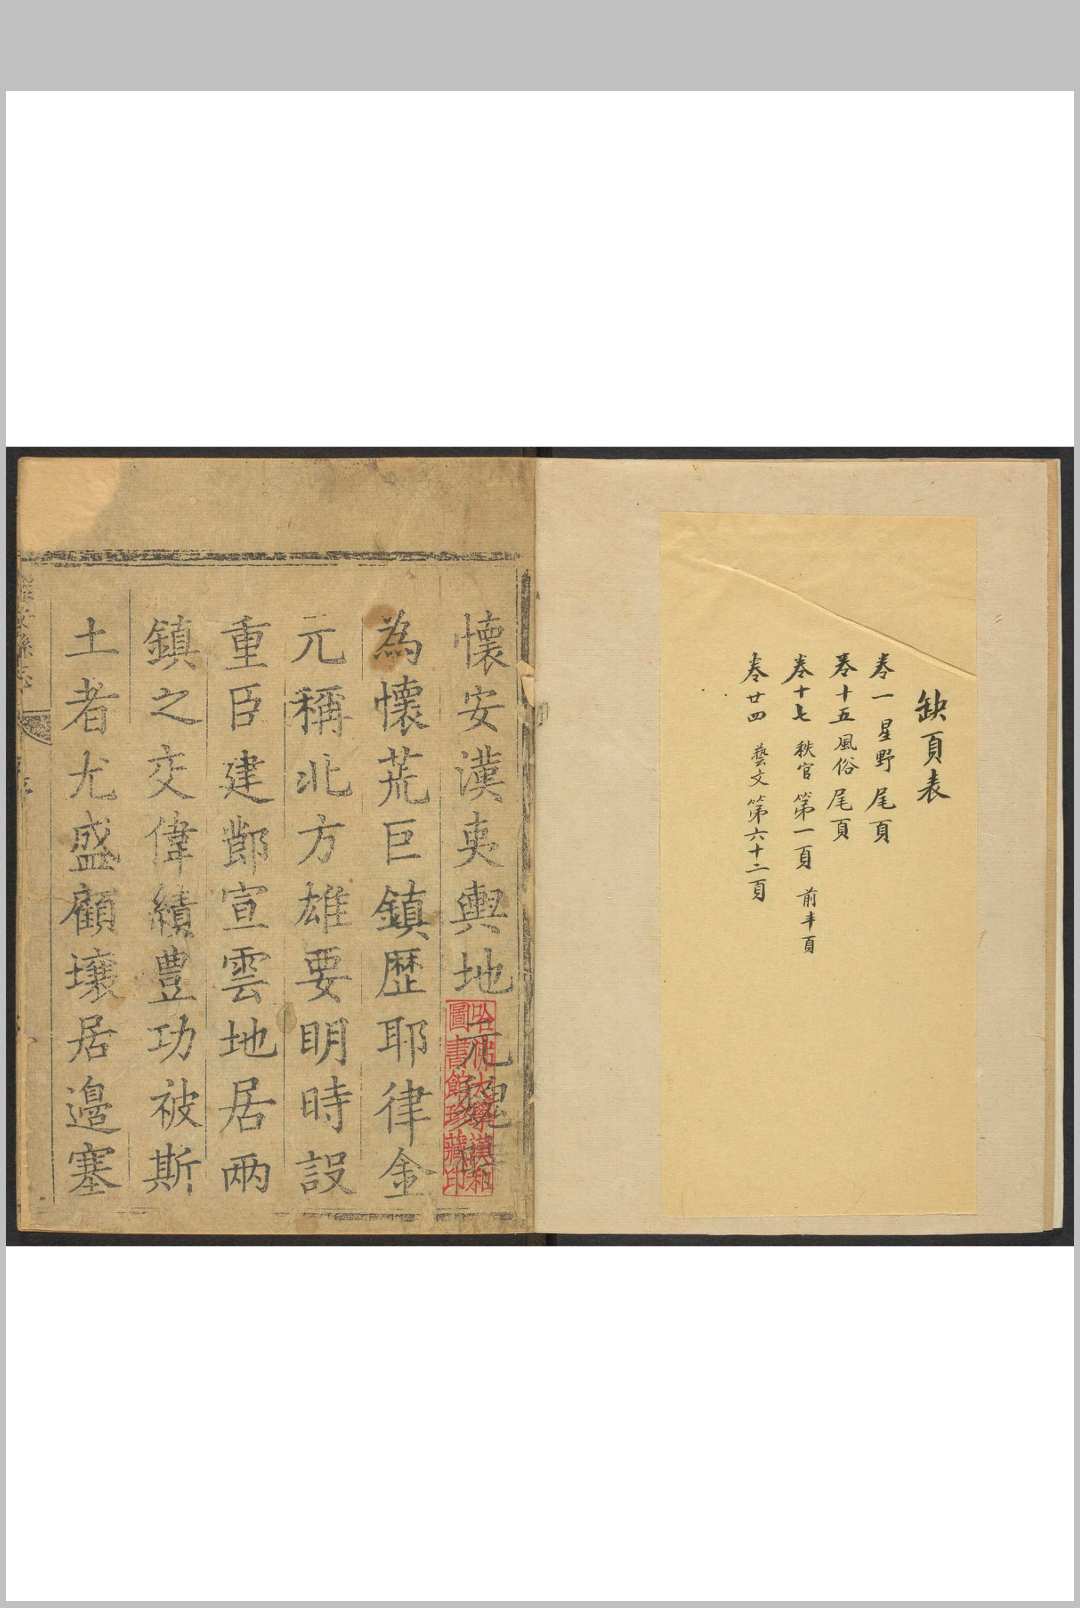 缺頁表
卷一 星野 尾頁
卷十五 風俗 尾頁
卷十七 秩官 第一頁 前半頁
卷廿四 藝文 第六十二頁
懷安漢夷輿地元魏
為懷荒巨鎮歷耶律金
元稱北方雄要明時設
重臣建鄼宣雲地居兩
鎮之交偉績豊功被斯
土者尤盛顧壤居邉塞
哈佛大學漢和
圖書館珍藏印
縣志